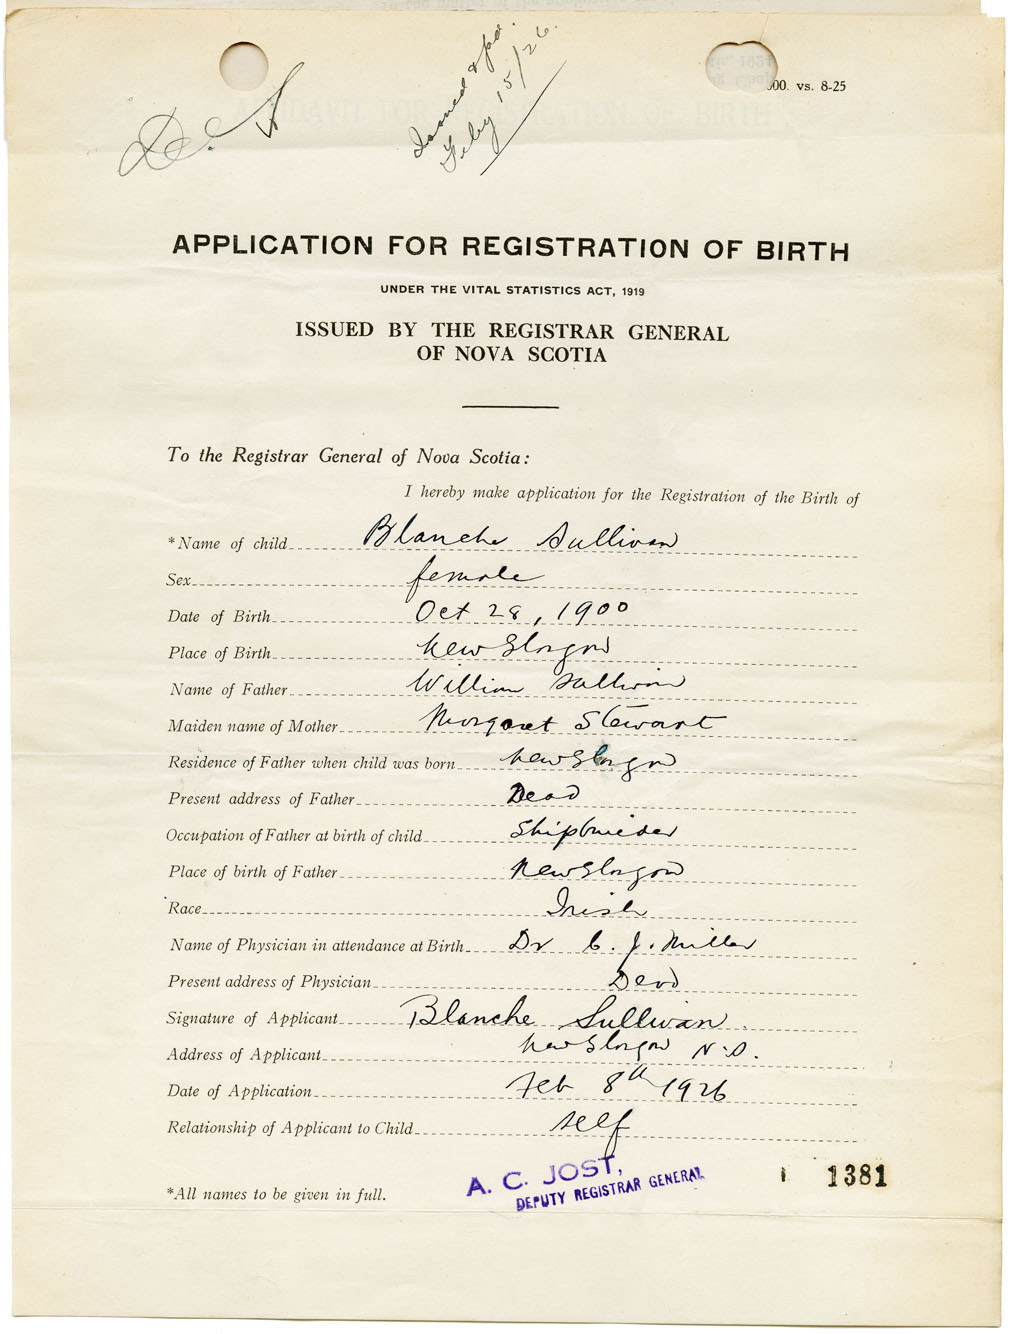 Issued & pd.
Feby 15/26.
00. vs. 8-25
APPLICATION FOR REGISTRATION OF BIRTH
UNDER THE VITAL STATISTICS ACT, 1919
ISSUED BY THE REGISTRAR GENERAL
OF NOVA SCOTIA
To the Registrar General of Nova Scotia:
I hereby make application for the Registration of the Birth of
*Name of child Blanche Sullivan
Sex female
Date of Birth Oct 28, 1900
Place of Birth New Glasgow
Name of Father William Sullivan
Maiden name of Mother Margaret Stewart
Residence of Father when child was born New Glasgow
Present address of Father Dead
Occupation of Father at birth of child Shipbuilder
Place of birth of Father New Glasgow
Race Irish
Name of Physician in attendance at Birth Dr C. J. Miller
Present address of Physician Dead
Signature of Applicant Blanche Sullivan.
Address of Applicant New Glasgow N.S.
Date of Application Feb 8th 1926
Relationship of Applicant to Child self
A. C. JOST,
DEPUTY REGISTRAR GENERAL
1381
*All names to be given in full.